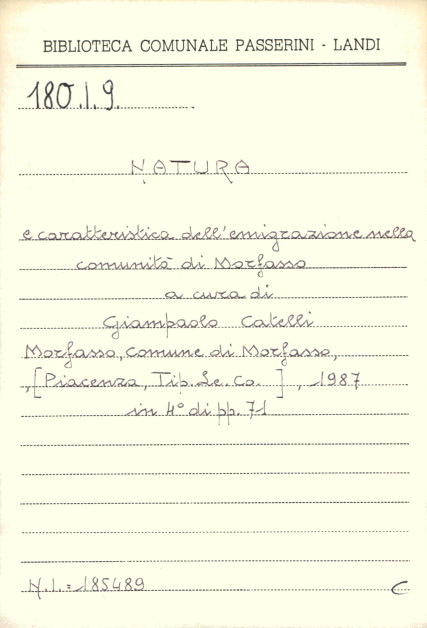 BIBLIOTECA COMUNALE PASSERINI - LANDI
180.I.9.
NATURA
e caratteristica dell'emigrazione nella
comunità di Morfasso
a cura di
Giampaolo Catelli
Morfasso, Comune di Morfasso,
,[Piacenza, Tip. Le. Co. ] , 1987
in 4° di pp. 71
N.I. = 185489
C